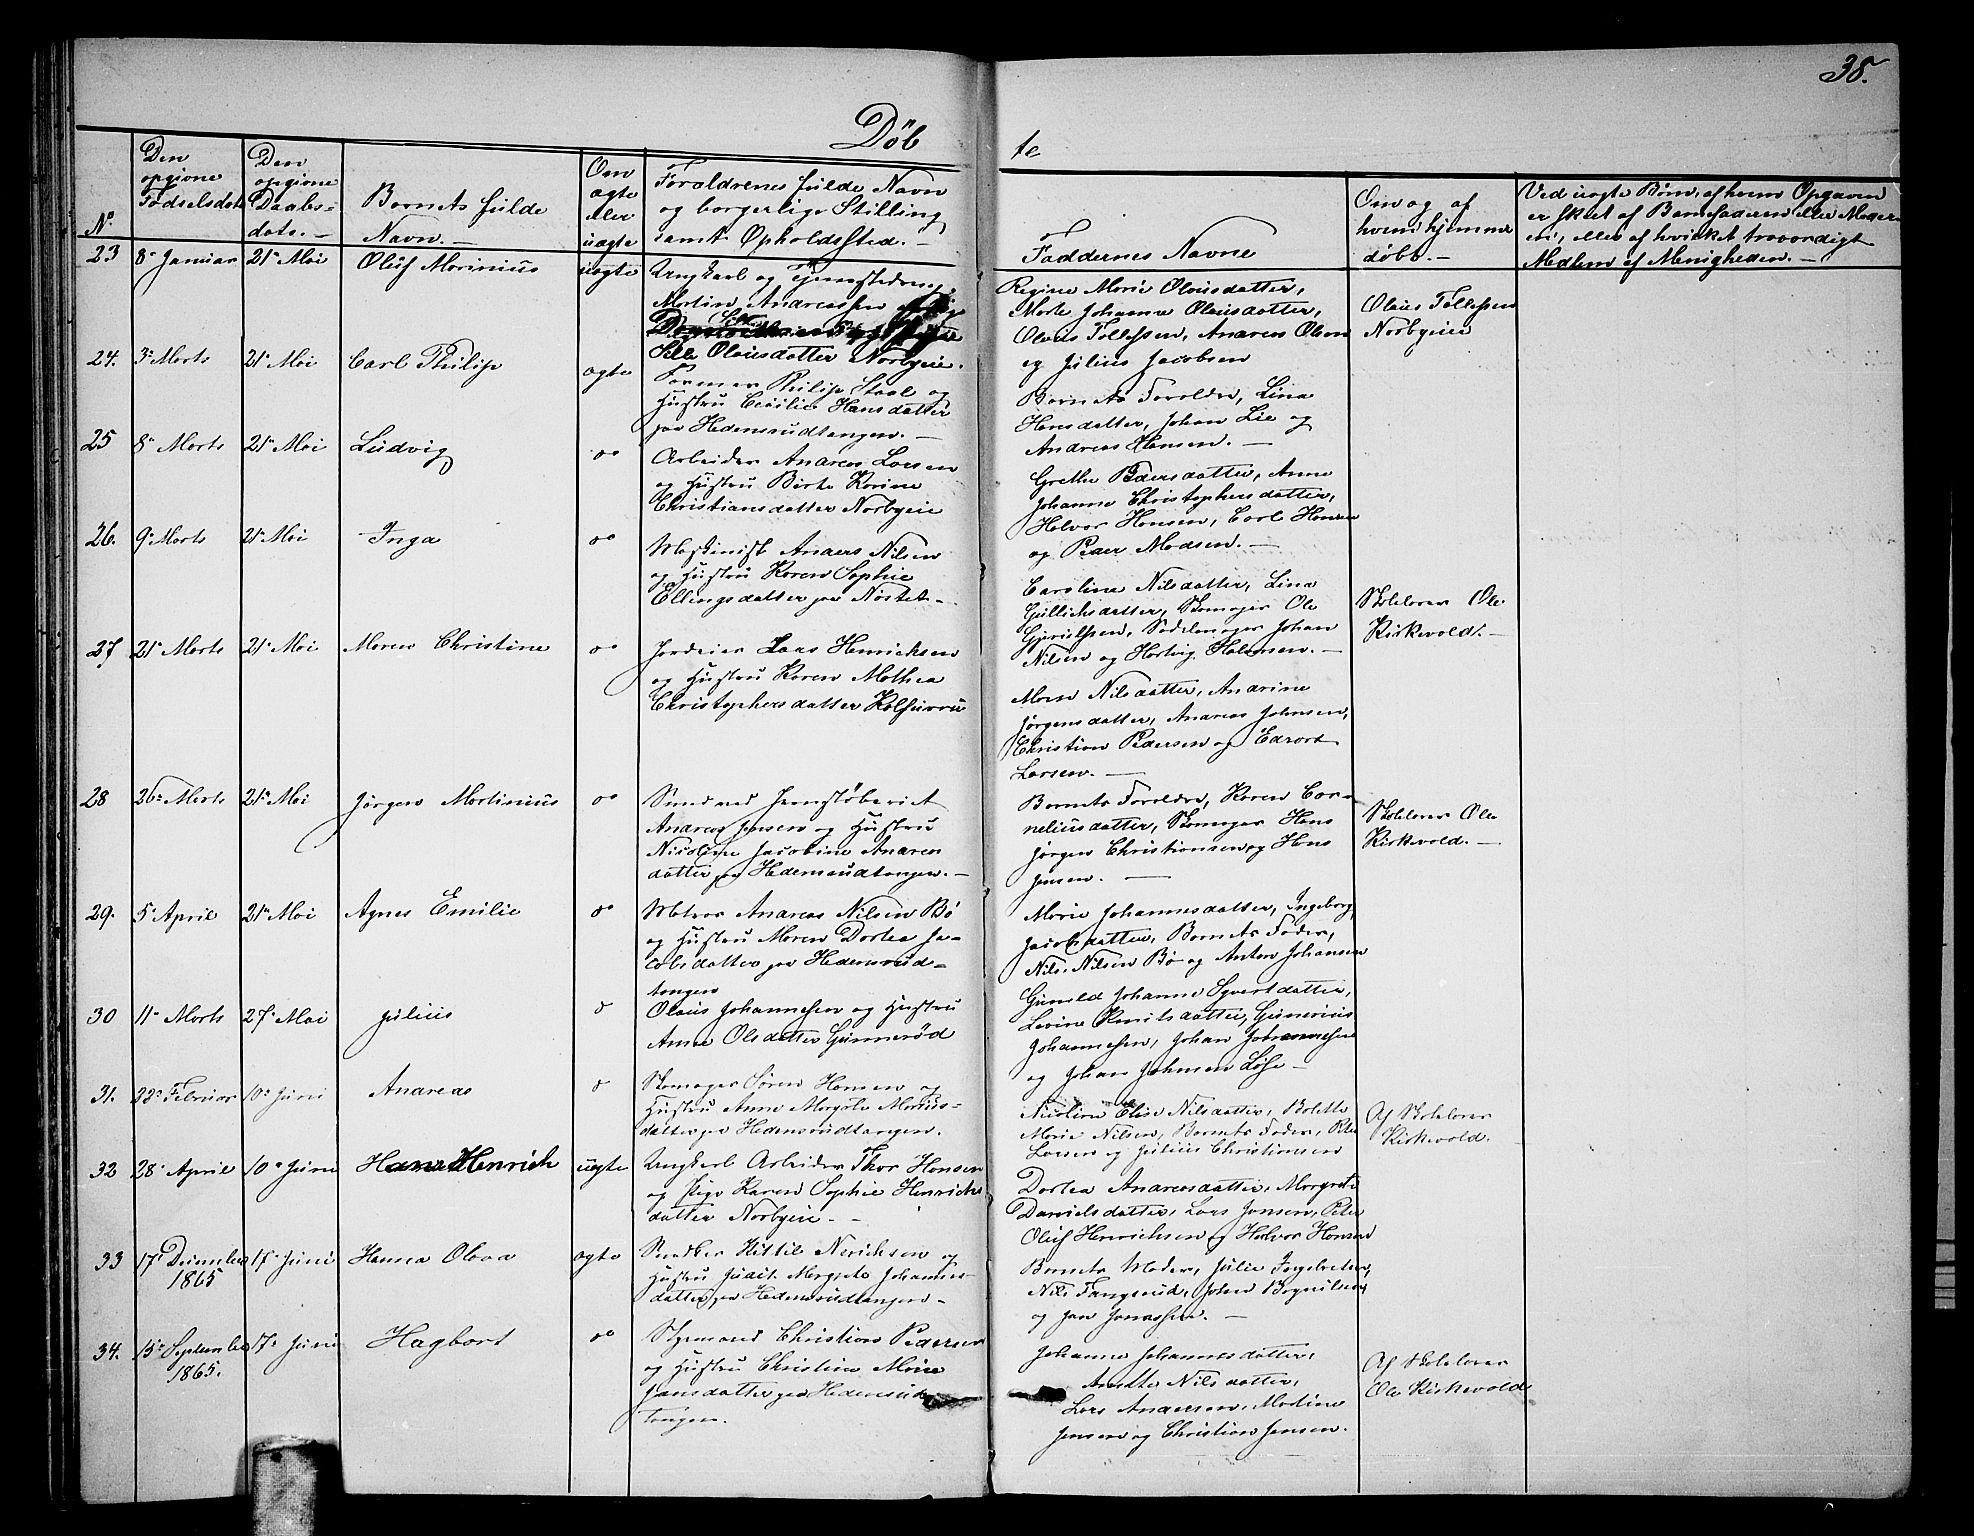 38.
Döb
te
No
Den opgivne Fødselsdato
Den opgivne Daabs-dato. —
Barnets fulde Navn. —
Om ægte eller uægte
Forældrenes fulde Navn og borgerlige Stilling samt Opholdssted. —
Faddernes Navne
Om og af hvem hjemme døbt. —
Ved uægte Børn, af hvem Opgaven er skeet af Barnefaderen eller Moderen, eller af hvilket troværdigt Medlem af Menigheden. —
23 8de Januar 21de Mai Oluf Marinius uægte
Ungkarl og
Martin Andreassen og
Silla Olausdatter Norbyeie.
Regine Marie Olausdatter,
Marte Johanne Olausdatter,
Olaus Tollefsen, Andreas Olsen
og Julius Jacobsen
Olaus Tollefsen
Norbyeie
24. 3de Marts 21de Mai Carl Philip ægte
Former Philip Staal og
Hustru Cecilie Hansdatter
paa Hedensrudtangen. —
Barnets Forældre, Lina
Hansdatter, Johan Lie og
Andreas Hansen. —
25 8de Marts 21de Mai Ludvig do
Arbeider Andreas Larsen
og Hustru Birte Karine
Christiansdatter Norbyeie
Grethe Pedersdatter, Anne
Johanne Christophersdatter,
Halvor Hansen, Carl Hansen
og Peder Madsen. —
26. 9de Marts 21de Mai Inga do
Maskinist Anders Nilsen
og Hustru Karen Sophie
Ellingsdatter paa Nøstet. —
Caroline Nilsdatter, Lina
Gullichsdatter, Skomager Ole
Sadelmager Johan
Nilsen og Hartvig Halvorsen. —
Skolelærer Ole
Kirkevold. —
27 21de Marts 21de Mai Maren Christine do
Jordeier Lars Henricksen
og Hustru Karen Mathea
Christophersdatter
Maren Nilsdatter, Andrine
Jørgensdatter, Andreas Johnsen,
Christian Pedersen og Edvart
Larsen. —
28 26de Marts 21de Mai Jørgen Martinius do
Smed ved Jernstøberiet
Andreas Jensen og Hustru
Nicoline Jacobine Andreas
datter paa Hedensrudtangen. —
Barnets Forældre, Karen Cor-
neliusdatter, Skomager Hans
Jørgen Christiansen og Hans
Jensen. —
Skolelærer Ole
Kirkevold. —
29. 5te April 21de Mai Agnes Emilie do
Matros Andreas Nilsen Bö
og Hustru Maren Dortea Ja-
cobsdatter paa Hedensrud-
tangen
Marie Johannesdatter, Ingeborg
Jacobsdatter, Barnets Fader,
Nils Nilsen Bö og Anton Johansen
30 11te Marts 27de Mai Julius do
Olaus Johannessen og Hustru
Anne Olsdatter Gunnerød
Gunild Johanne Syvertsdatter,
Lovise Knutsdatter, Gunerius
Johannessen, Johan Johannessen
og Johan Johnsen
31. 28de Februar 10de Juni Andreas do
Skomager Søren Hansen og
Hustru Anne Margrete Marius-
datter paa Hedensrudtangen.
Nicoline Elise Nilsdatter, Bolette
Marie Nilsen, Barnets Fader, Peter
Larsen og Julius Christiansen
Af Skolelærer
Kirkevold.
32 28de April 10de Juni Hans Henrich uægte
Ungkarl Arbeider Thor Hansen
og Pige Karen Sophie Henrichs
datter Norbyeie. —
Dortea Andreasdatter, Margrete
Danielsdatter, Lars Jensen, Peter
Oluf Henrichsen og Halvor Hansen
33 17de December 1865 17de Juni Hanna Olava ægte
Kittil
Hustru Judit Margrete Johannes-
datter paa Hedensrudtangen —
Barnets Moder, Julie
Nils
og Jan Jonassen. —
34. 15de September 1865. 17de Juni Hagbart do
Styrmand Christian Pedersen
og Hustru Christine Marie
Jansdatter paa Hedensrud
tangen.
Johanne Johannesdatter,
Nilsdatter,
Lars Andersen, Martine
Jensen og Christian Jensen.
Af Skolelærer
Ole Kirkevold